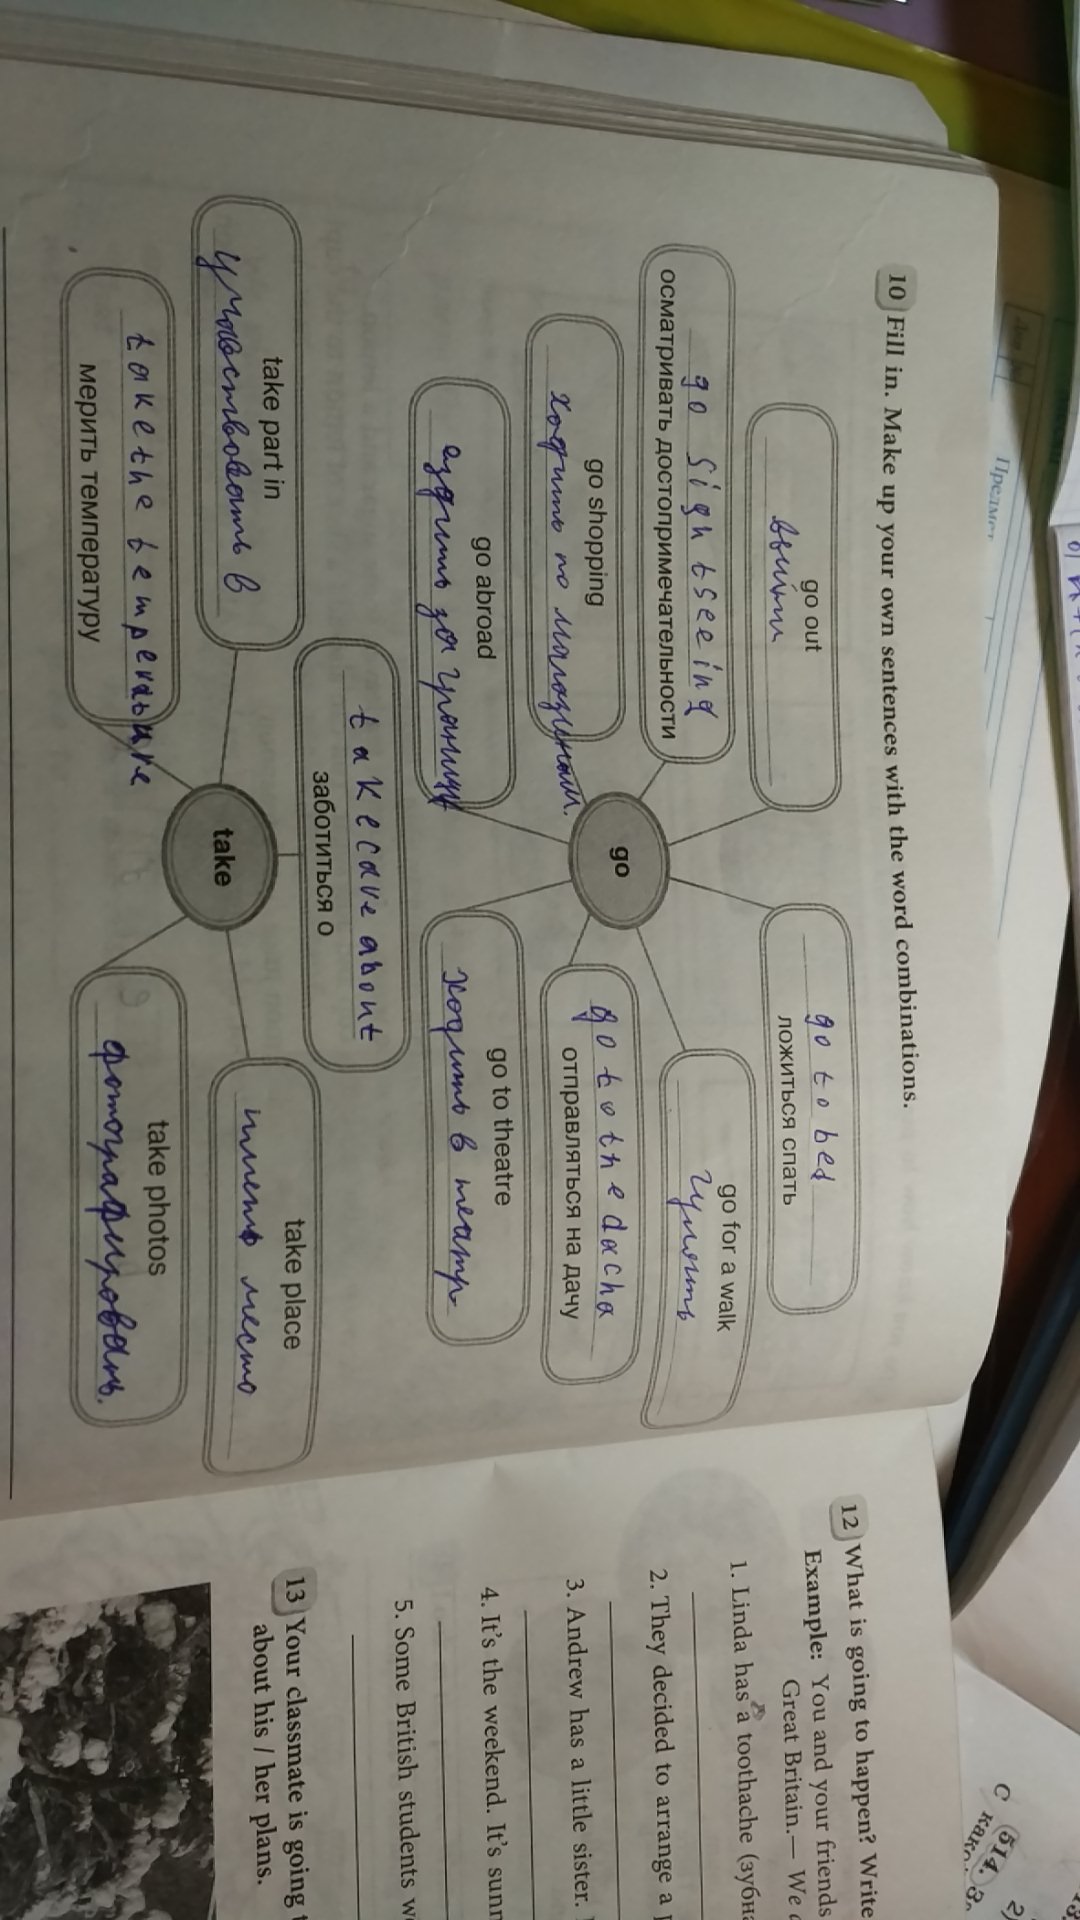 10 Fill in. Make up your own sentences with the word combinations.
go out
выйти
go to bed
ложиться спать
go sightseeing
осматривать достопримечательности
go for a walk
гулять
go shopping
ходить по магазинам.
go
go to the dacha
отправляться на дачу
go abroad
ездить за границу
go to theatre
ходить в театр
take care about
заботиться о
take part in
участвовать в
take
take place
иметь место
take the temperature
мерить температуру
take photos
фотографировать.
12 What is going to happen? Write
Example: You and your friends
Great Britain.— We
1. Linda has a toothache
2. They decided to arrange a
3. Andrew has a little sister.
4. It's the weekend. It's
5. Some British students
13 Your classmate is going
about his / her plans.